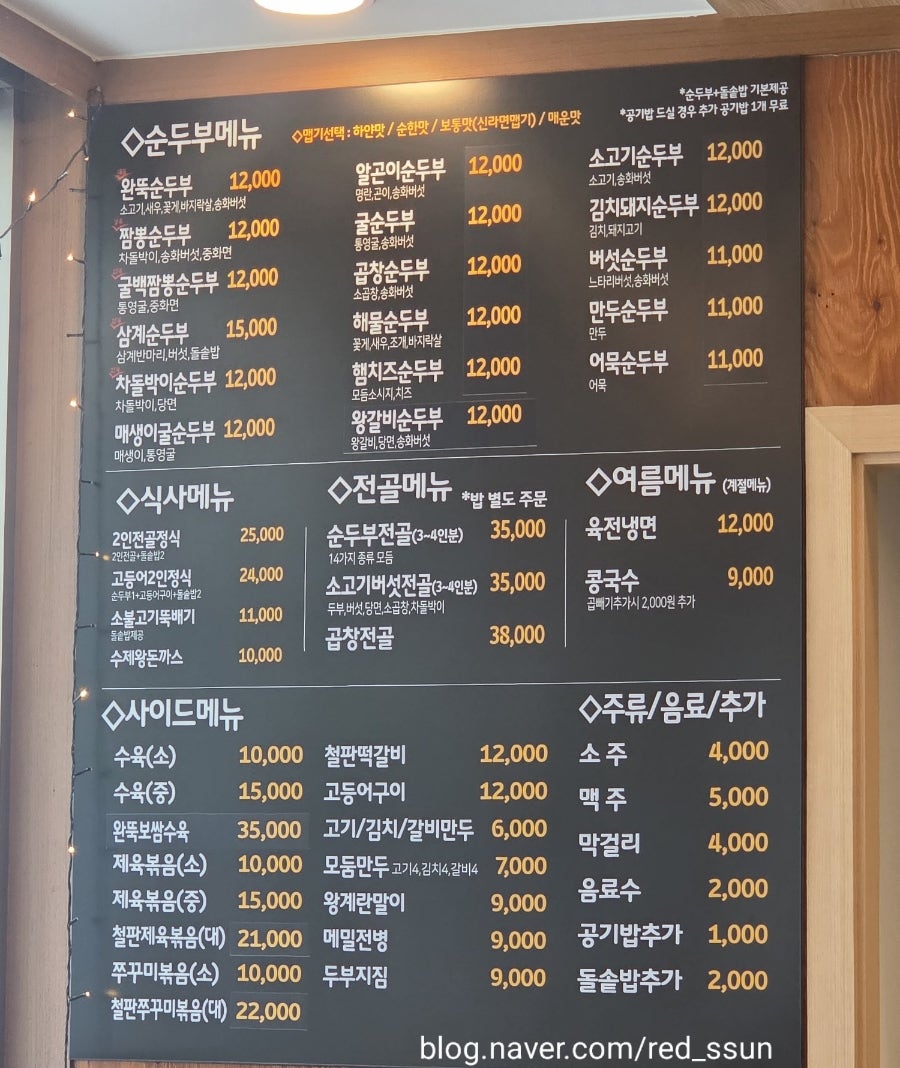 *순두부+돌솥밥 기본제공
*공기밥 드실 경우 추가 공기밥 1개 무료
◇순두부메뉴
◇맵기선택 : 하얀맛 / 순한맛 / 보통맛(신라면맵기) / 매운맛
완뚝순두부 12,000
소고기,새우,꽃게,바지락살,송화버섯
짬뽕순두부 12,000
차돌박이,송화버섯,중화면
굴백짬뽕순두부 12,000
통영굴,중화면
삼계순두부 15,000
삼계반마리,버섯,돌솥밥
차돌박이순두부 12,000
차돌박이,당면
매생이굴순두부 12,000
매생이,통영굴
알곤이순두부 12,000
명란,곤이,송화버섯
굴순두부 12,000
통영굴,송화버섯
곱창순두부 12,000
소곱창,송화버섯
해물순두부 12,000
꽃게,새우,조개,바지락살
햄치즈순두부 12,000
모듬소시지,치즈
왕갈비순두부 12,000
왕갈비,당면,송화버섯
소고기순두부 12,000
소고기,송화버섯
김치돼지순두부 12,000
김치,돼지고기
버섯순두부 11,000
느타리버섯,송화버섯
만두순두부 11,000
만두
어묵순두부 11,000
어묵
◇식사메뉴
2인전골정식 25,000
2인전골+돌솥밥2
고등어2인정식 24,000
순두부1+고등어구이+돌솥밥2
소불고기뚝배기 11,000
돌솥밥제공
수제왕돈까스 10,000
◇전골메뉴 *밥 별도 주문
순두부전골(3~4인분) 35,000
14가지 종류 모듬
소고기버섯전골(3~4인분) 35,000
두부,버섯,당면,소곱창,차돌박이
곱창전골 38,000
◇여름메뉴 (계절메뉴)
육전냉면 12,000
콩국수 9,000
곱빼기추가시 2,000원 추가
◇사이드메뉴
수육(소) 10,000
수육(중) 15,000
완뚝보쌈수육 35,000
제육볶음(소) 10,000
제육볶음(중) 15,000
철판제육볶음(대) 21,000
쭈꾸미볶음(소) 10,000
철판쭈꾸미볶음(대) 22,000
철판떡갈비 12,000
고등어구이 12,000
고기/김치/갈비만두 6,000
모둠만두 고기4,김치4,갈비4 7,000
왕계란말이 9,000
메밀전병 9,000
두부지짐 9,000
◇주류/음료/추가
소 주 4,000
맥 주 5,000
막걸리 4,000
음료수 2,000
공기밥추가 1,000
돌솥밥추가 2,000
blog.naver.com/red_ssun